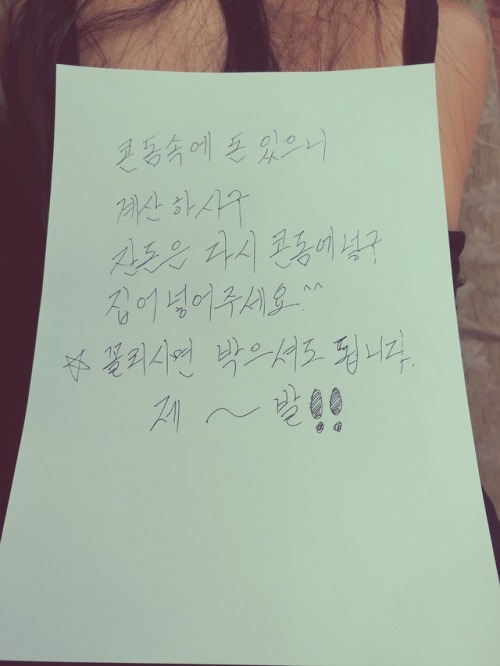 콘돔속에 돈 있으니
계산 하시구
잔돈은 다시 콘돔에넣구
집어넣어주세요^^
☆ 꼴리시면 박으셔도 됩니다.
제 ~ 발!!